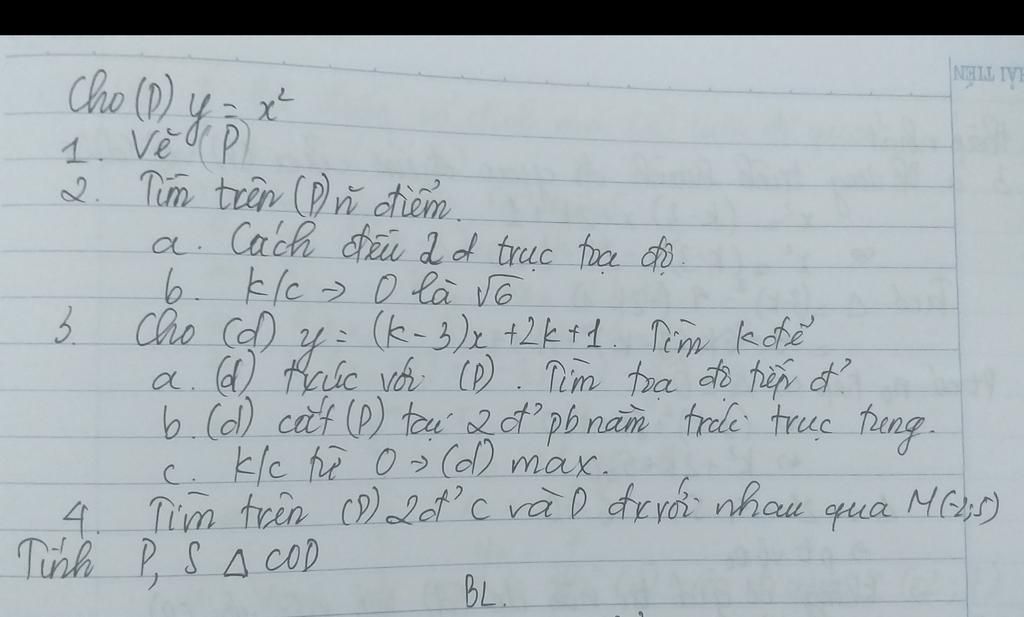 HẢI TIẾN
Cho (P) y = x²
1. Vẽ (P)
2. Tìm trên (P) n~ điểm.
a. Cách đều 2 đ trục tọa độ.
b. k/c → O là √6
3. Cho (d) y = (k-3)x + 2k + 1. Tìm k để
a. (d) txúc với (P). Tìm tọa độ tiếp đ'
b. (d) cắt (P) tại 2 đ' pb nằm trái trục tung.
c. k/c từ O → (d) max.
4. Tìm trên (P) 2 đ' C và D đx với nhau qua M(-2;5)
Tính P, S Δ COD
BL.